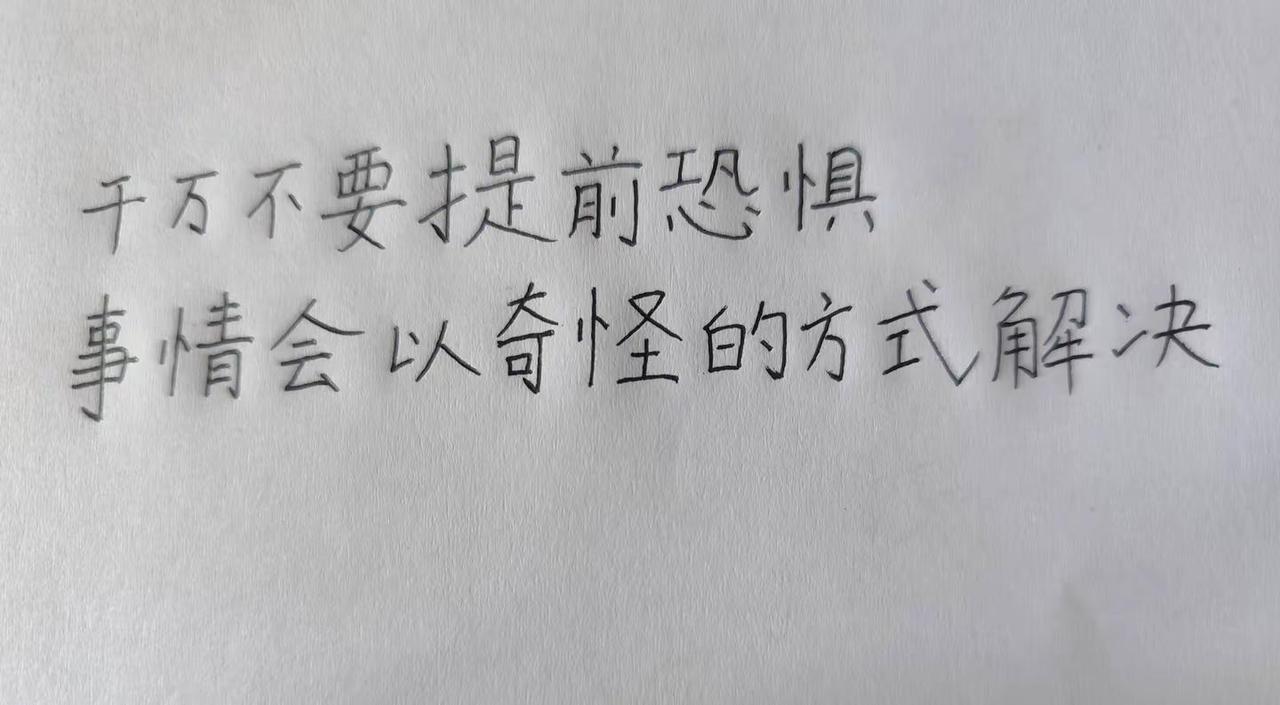 千万不要提前恐惧
事情会以奇怪的方式解决